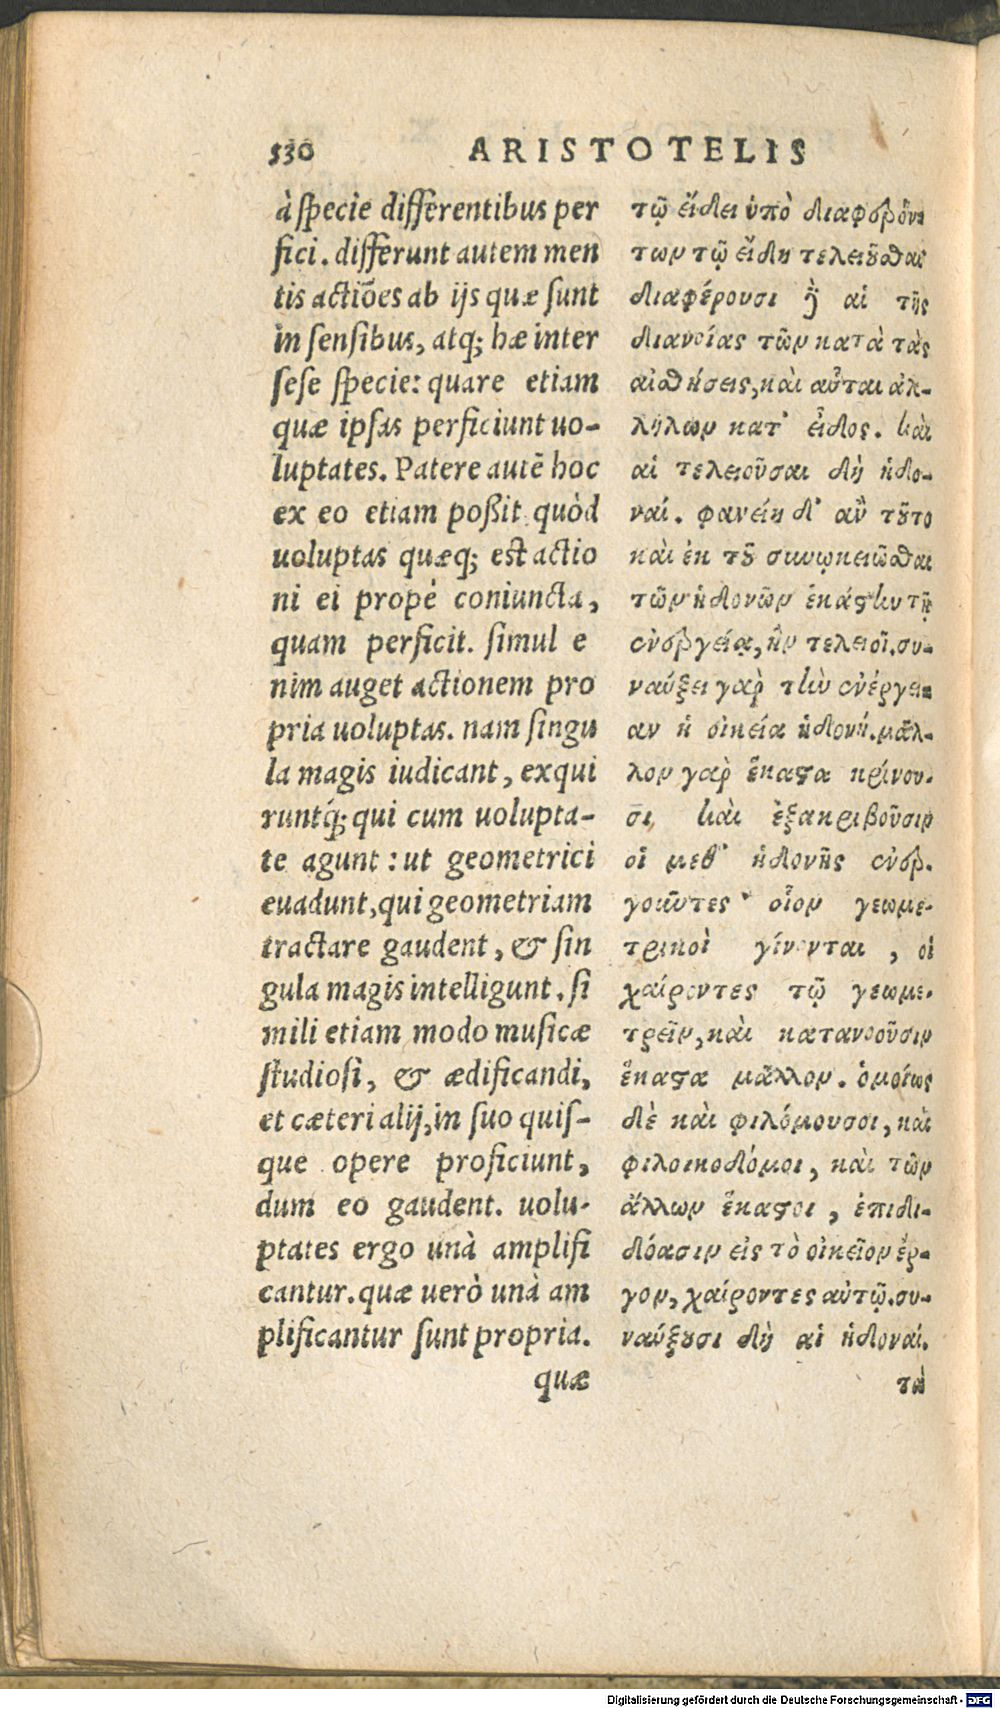 530 ARISTOTELIS
à specie differentibus per
fici. differunt autem men
tis actiões ab ijs quæ sunt
in sensibus, atq; hæ inter
sese specie: quare etiam
quæ ipsas perficiunt uo-
luptates. Patere autē hoc
ex eo etiam poßit quòd
uoluptas quæq; est actio
ni ei propè coniuncta,
quam perficit. simul e
nim auget actionem pro
pria uoluptas. nam singu
la magis iudicant, exqui
runtq́; qui cum uolupta-
te agunt: ut geometrici
euadunt, qui geometriam
tractare gaudent, & sin
gula magis intelligunt. si
mili etiam modo musicæ
studiosi, & ædificandi,
et cæteri alij, in suo quis-
que opere proficiunt,
dum eo gaudent. uolu-
ptates ergo unà amplifi
cantur. quæ uerò unà am
plificantur sunt propria.
quæ
τῷ εἴδει ὑπὸ διαφερόν
των τῷ εἴδει τελειοῦσθαι
διαφέρουσι δὲ αἱ τῆς
διανοίας τῶν κατὰ τὰς
αἰσθήσεις, καὶ αὗται ἀλ-
λήλων κατ' εἶδος. καὶ
αἱ τελειοῦσαι δὴ ἡδο-
ναί. φανείη δ' ἂν τοῦτο
καὶ ἐκ τοῦ συνῳκειῶσθαι
τῶν ἡδονῶν ἑκάστην τῇ
ἐνεργείᾳ, ἣν τελειοῖ. συ-
ναύξει γὰρ τὴν ἐνέργει-
αν ἡ οἰκεία ἡδονή. μᾶλ-
λον γὰρ ἕκαστα κρίνου-
σι, καὶ ἐξακριβοῦσιν
οἱ μεθ' ἡδονῆς ἐνερ-
γοῦντες· οἷον γεωμε-
τρικοὶ γίνονται, οἱ
χαίροντες τῷ γεωμε-
τρεῖν, καὶ κατανοοῦσιν
ἕκαστα μᾶλλον. ὁμοίως
δὲ καὶ φιλόμουσοι, καὶ
φιλοικοδόμοι, καὶ τῶν
ἄλλων ἕκαστοι, ἐπιδι-
δόασιν εἰς τὸ οἰκεῖον ἔρ-
γον, χαίροντες αὐτῷ. συ-
ναύξουσι δὴ αἱ ἡδοναί.
τὰ
Digitalisierung gefördert durch die Deutsche Forschungsgemeinschaft - DFG